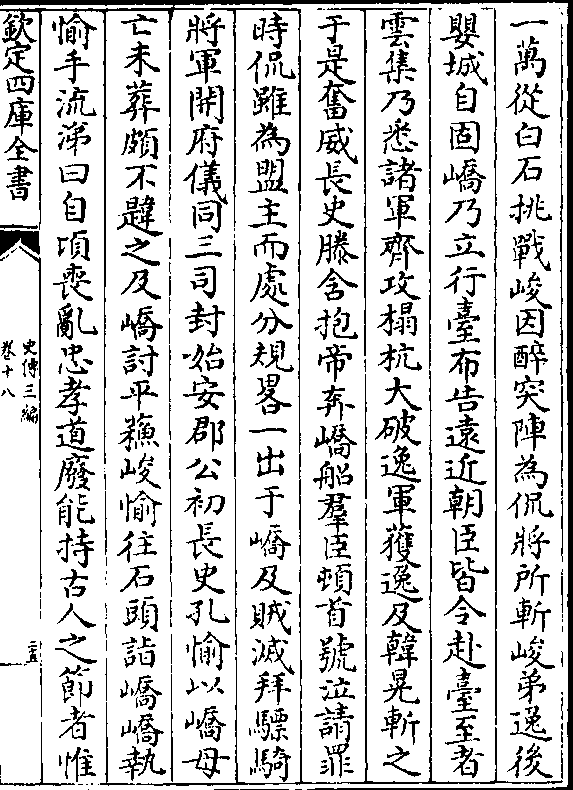 一萬從白石挑戰峻因醉突陣為侃將所斬峻弟逸後
嬰城自固嶠乃立行臺布告遠近朝臣皆令赴臺至者
雲集乃悉諸軍齊攻榻杭大破逸軍獲逸及韓晃斬之
于是奮威長史滕含抱帝奔嶠船羣臣頓首號泣請罪
時侃雖為盟主而處分規畧一出于嶠及賊滅拜驃騎
將軍開府儀同三司封始安郡公初長史孔愉以嶠母
亡未葬頗不韙之及嶠討平蘓峻愉往石頭詣嶠嶠執
愉手流涕曰自頃喪亂忠孝道廢能持古人之節者惟
欽定四庫全書
史傳三編
卷十八
二十五